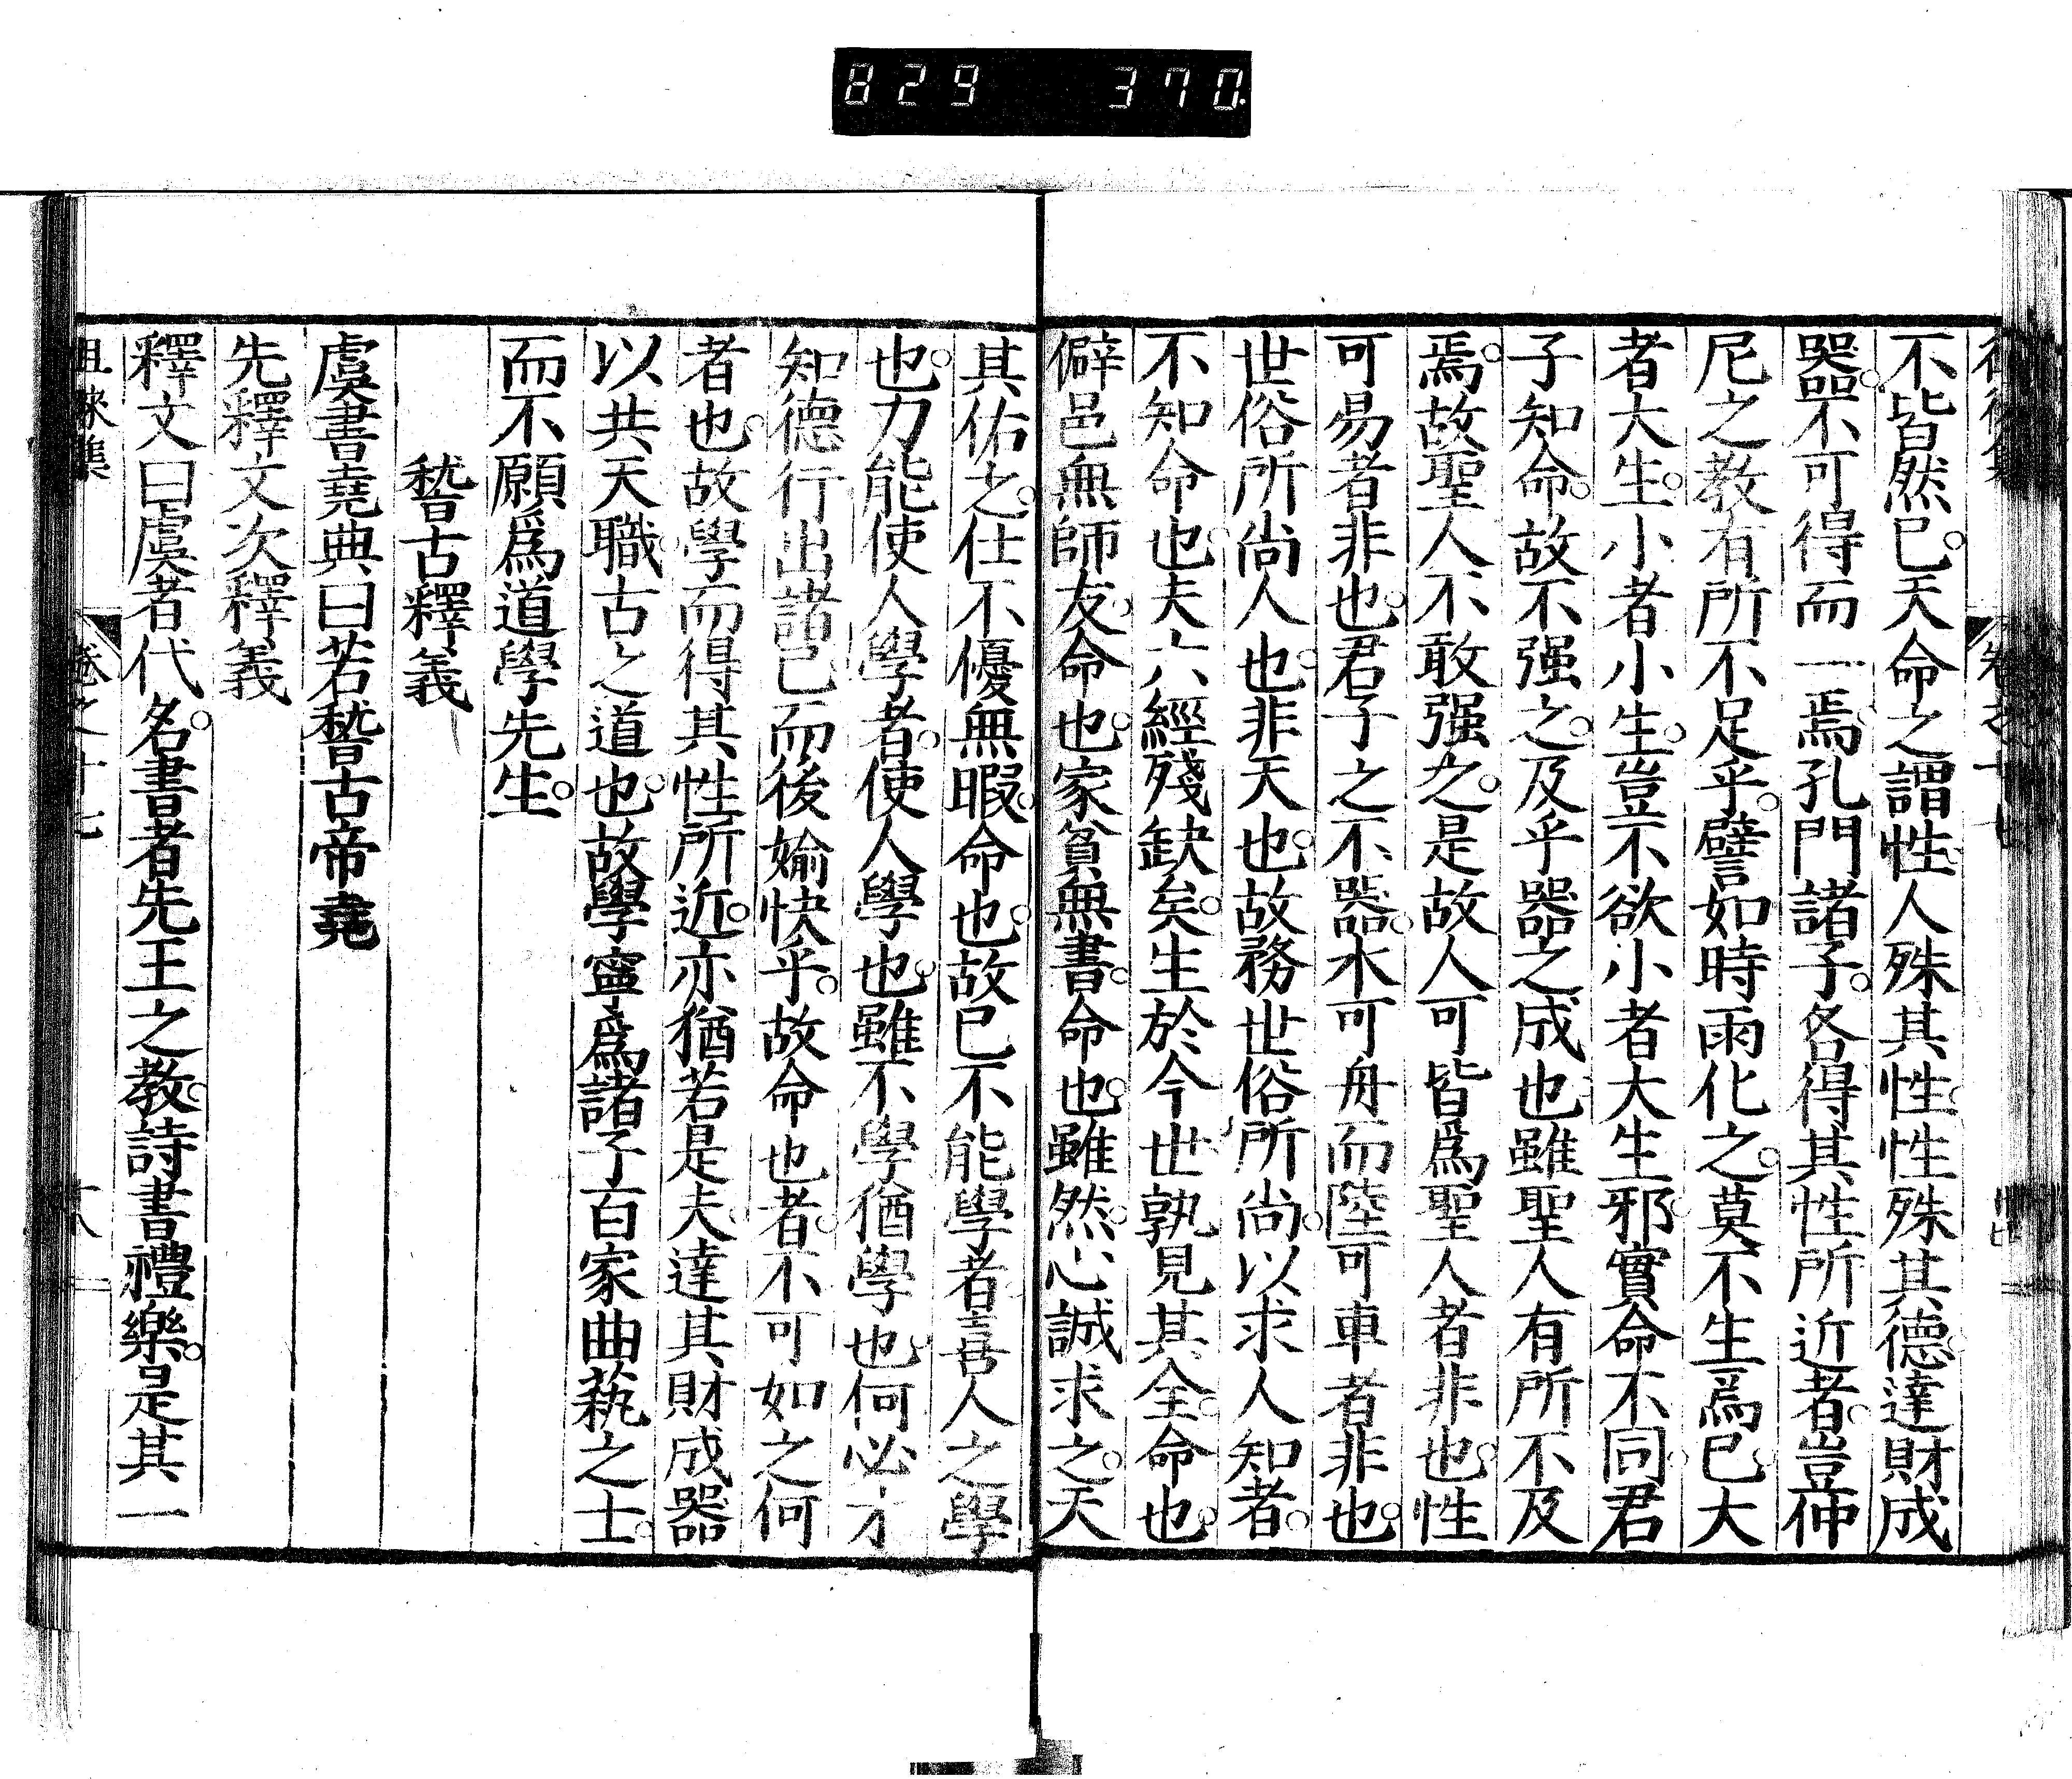 829 370.
不皆然已。天命之謂性。人殊其性。性殊其德。達財成
器。不可得而一焉。孔門諸子。各得其性所近者。豈仲
尼之教有所不足乎。譬如時雨化之。莫不生焉已。大
者大生。小者小生。豈不欲小者大生邪。實命不同。君
子知命。故不强之。及乎器之成也。雖聖人有所不及
焉。故聖人不敢强之。是故人可皆爲聖人者非也。性
可易者非也。君子之不器。水可舟而陸可車者非也。
世俗所尚人也。非天也。故務世俗所尚。以求人知者。
不知命也。夫六經殘缺矣。生於今世。孰見其全。命也。
僻邑無師友。命也。家貧無書。命也。雖然。心誠求之。天
其佑之。仕不優無暇。命也。故已不能學者。喜人之學
也。力能使人學者。使人學也。雖不學猶學也。何必才
知德行出諸己而後媮快乎。故命也者。不可如之何
者也。故學而得其性所近。亦猶若是夫。達其財成器
以共天職。古之道也。故學寧爲諸子百家曲藝之士。
而不願爲道學先生。
稽古釋義
虞書堯典曰若稽古帝堯
先釋文次釋義
釋文曰虞者代名。書者先王之教。詩書禮樂。是其一
徂徠集 卷之十七 十八